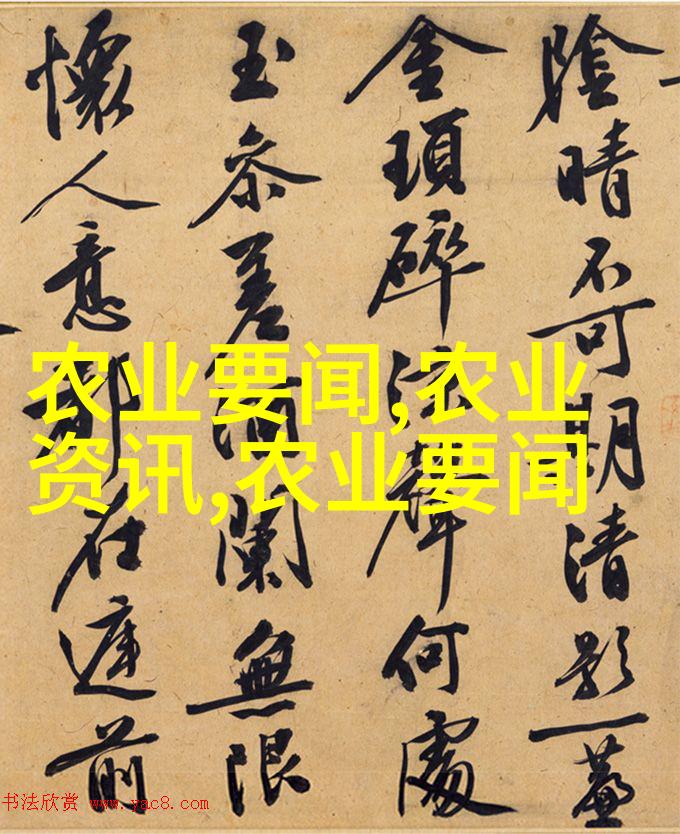 陰晴不可期清影一
金瑣碎 聲何處
玉參差酒闌無限
懷人意都在 前
农业要闻,农业
资讯,农业要闻
书法欣赏 www.yac8.com